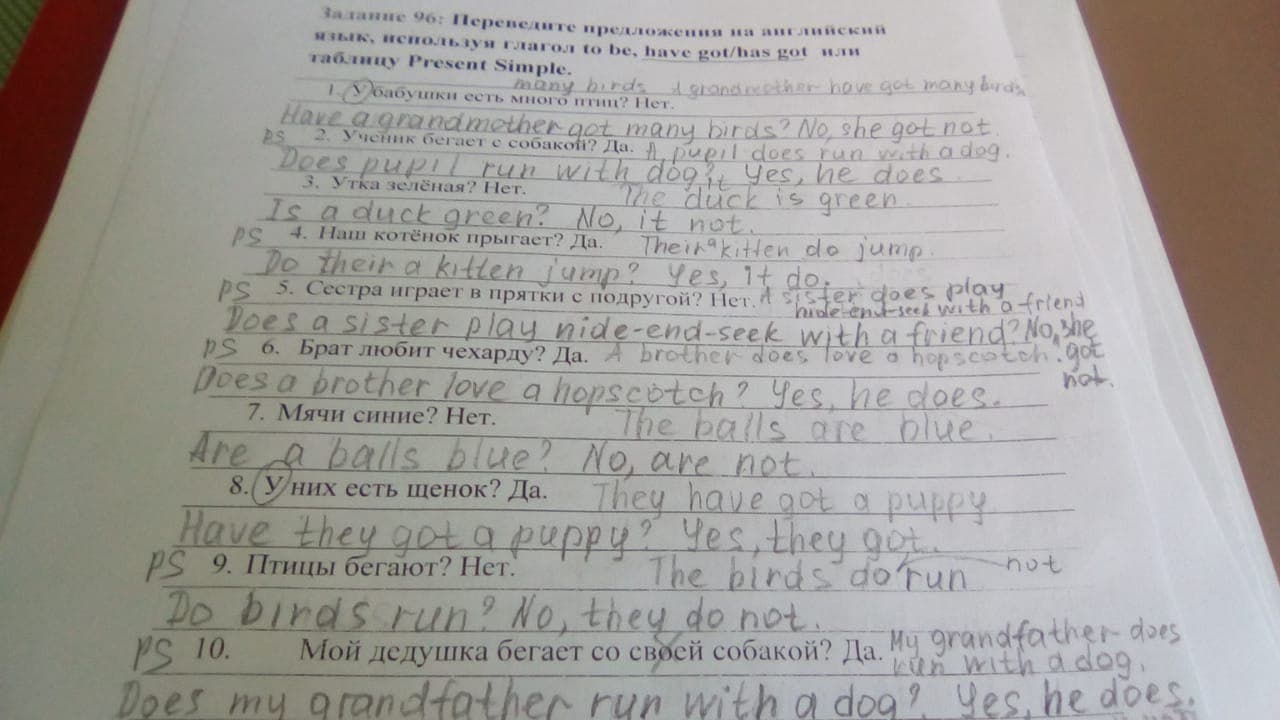 Задание 96: Переведите предложения на английский
язык, используя глагол to be, have got/has got или
таблицу Present Simple.
many birds A grandmother have got many birds
1. У бабушки есть много птиц? Нет.
Have a grandmother got many birds? No, she got not.
PS 2. Ученик бегает с собакой? Да. A pupil does run with a dog.
Does pupil run with dog? Yes, he does.
3. Утка зелёная? Нет. It The duck is green.
Is a duck green? No, it not.
PS 4. Наш котёнок прыгает? Да. Their a kitten do jump.
Do their a kitten jump? Yes, it do.
PS 5. Сестра играет в прятки с подругой? Нет. A sister does play
hide-end-seek with a friend
Does a sister play hide-end-seek with a friend? No, she
got not.
PS 6. Брат любит чехарду? Да. A brother does love a hopscotch.
Does a brother love a hopscotch? Yes, he does.
7. Мячи синие? Нет. The balls are blue.
Are a balls blue? No, are not.
8. У них есть щенок? Да. They have got a puppy
Have they got a puppy? Yes, they got.
PS 9. Птицы бегают? Нет. The birds do run not
Do birds run? No, they do not.
PS 10. Мой дедушка бегает со своей собакой? Да. My grandfather does
run with a dog.
Does my grandfather run with a dog? Yes, he does.